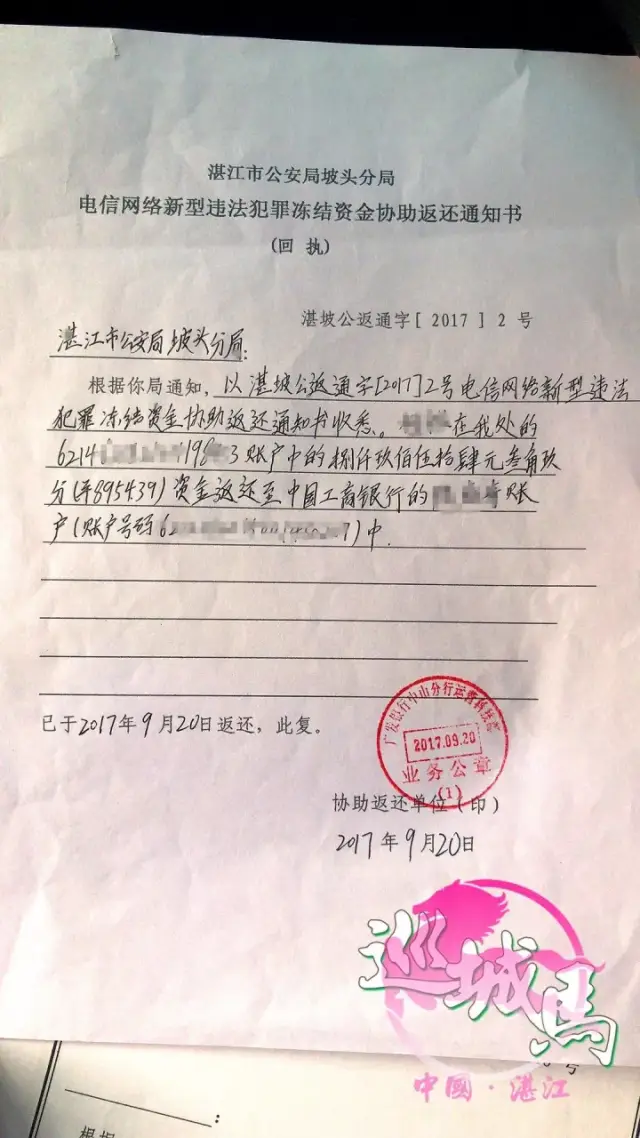 湛江市公安局坡头分局
电信网络新型违法犯罪冻结资金协助返还通知书
(回 执)
湛坡公返通字[ 2017 ] 2 号
湛江市公安局坡头分局:
根据你局通知,以湛坡公返通字[2017]2号电信网络新型违法
犯罪冻结资金协助返还通知书收悉。 在我处的
6214 198 3账户中的捌仟玖佰伍拾肆元叁角玖
分(¥8954.39)资金返还至中国工商银行的 账
户(账户号码6 )中.
已于2017年9月20日返还,此复。
广发银行中山分行运营
2017.09.20
业务公章
(1)
协助返还单位(印)
2017年9月20日
巡城馬
中國·湛江
号
:
根据